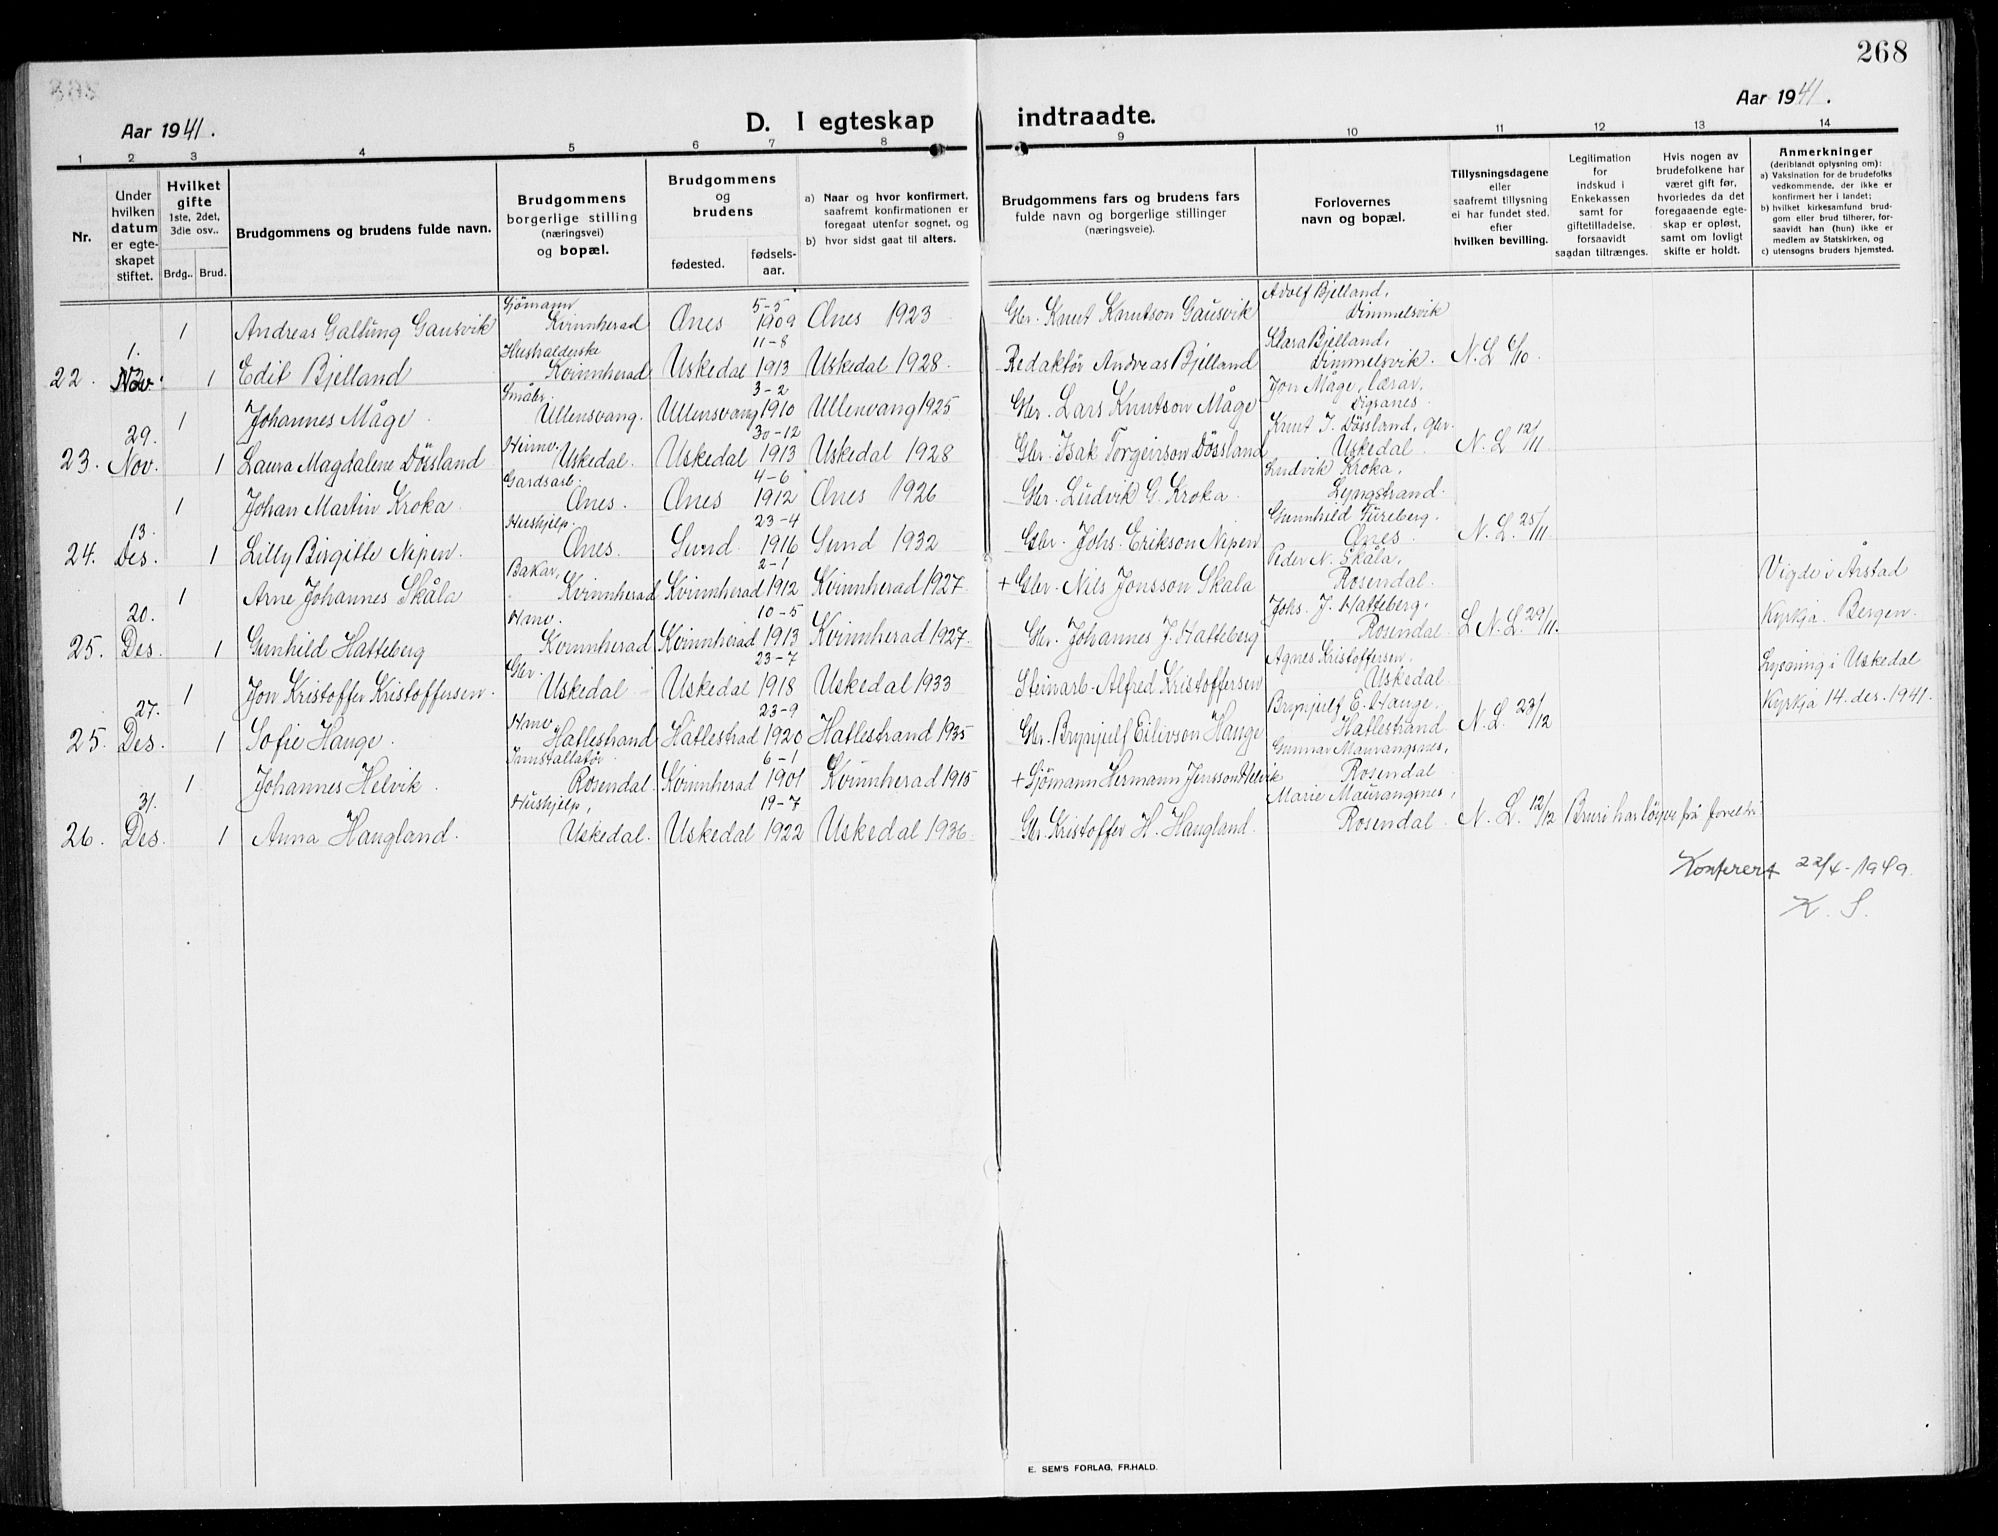 268
Aar 1941.
Aar 1941.
D. I egteskap indtraadte.
1 2 3 4 5 6 7 8 9 10 11 12 13 14
Nr.
Under hvilken datum er egteskapet stiftet.
Hvilket gifte 1ste, 2det, 3die osv..
Brdg.. Brud.
Brudgommens og brudens fulde navn.
Brudgommens borgerlige stilling (næringsvei) og bopæl.
Brudgommens og brudens
fødested.
fødselsaar.
a) Naar og hvor konfirmert, saafremt konfirmationen er foregaat utenfor sognet, og
b) hvor sidst gaat til alters.
Brudgommens fars og brudens fars fulde navn og borgerlige stillinger (næringsveie).
Forlovernes navn og bopæl.
Tillysningsdagene eller saafremt tillysning ei har fundet sted. efter hvilken bevilling.
Legitimation for indskud i Enkekassen samt for giftetilladelse, forsaavidt saadan tiltrænges.
Hvis nogen av brudefolkene har været gift før, hvorledes da det foregaaende egteskap er opløst, samt om lovligt skifte er holdt.
Anmerkninger (deriblandt oplysning om):
a) Vaksination for de brudefolks vedkommende, der ikke er konfirmert her i landet;
b) hvilket kirkesamfund brudgom eller brud tilhører, forsaavidt han (hun) ikke er medlem av Statskirken, og
c) utensogns bruders hjemsted.
1 Andreas Gallung Gausvik Sjømann Kvinnherad Ænes 5-5 1909 Ænes 1923 Gbr. Knut Knutson Gausvik Adolf Bjelland, Dimmelsvik
22. 1. Nov. 1 Edit Bjelland Hushalderske Kvinnherad Uskedal 11-8 1913 Uskedal 1928. Redaktør Andreas Bjelland Klara Bjelland, Dimmelsvik. N. L 6/10.
1 Johannes Måge. Småbr. Ullensvang. Ullensvang 3-2 1910 Ullenvang 1925 Gbr. Lars Knutson Måge Jon Måge, lærar, Digranes.
23. 29. Nov. 1 Laura Magdalene Døssland Heimv. Uskedal. Uskedal 30-12 1913 Uskedal 1928 Gbr. Isak Torgeirson Døssland Knut I. Døssland, gbr. Uskedal. N. L 12/11.
1 Johan Martin Kroka. Gardsarb. Ænes. Ænes 4-6 1912 Ænes 1926 Gbr. Ludvik G. Kroka. Ludvik Kroka, Lyngstrand.
24. 13. Des. 1 Lilly Birgitte Nipen. Hushjelp. Ænes. Sund. 23-4 1916 Sund 1932 Gbr. Johs. Erikson Nipen Gunnhild Tureberg, Ænes. N. L. 25/11
1 Arne Johannes Skåla Bakar, Kvinnherad Kvinnherad 2-1 1912 Kvinnherad 1927. + Gbr. Nils Jonsson Skåla Peder N. Skåla, Rosendal. Vigde i Årstad
25. 20. Des. 1 Gunhild Hatteberg Hmv. Kvinnherad Kvinnherad 10-5 1913 Kvinnherad 1927. Gbr. Johannes J. Hatteberg Johs. J. Hatteberg, Rosendal. L N. L. 29/11. Kyrkja. Bergen.
1 Jon Kristoffer Kristoffersen. Gbr. Uskedal Uskedal 23-7 1918 Uskedal 1933 Steinarb. Alfred Kristoffersen Agnes Kristoffersen, Uskedal. Lysning i Uskedal
25. 27. Des. 1 Sofie Hauge. Hmv Hatlestrand Hatlestrad 23-9 1920 Hatlestrand 1935 Gbr. Brynjulf Eilivson Hauge Brynjulf E. Hauge, Hatlestrand N. L. 23/12 Kyrkja 14. des. 1941.
1 Johannes Helvik. Innstallatør Rosendal. Kvinnherad 6-1 1901 Kvinnherad 1915 + Sjømann Hermann Jensson Helvik Gunnar Maurangsnes, Rosendal
26. 31. Des. 1 Anna Haugland. Hushjelp, Uskedal. Uskedal 19-7 1922 Uskedal 1936. Gbr. Kristoffer H. Haugland. Marie Maurangsnes, Rosendal. N. L. 12/12 Bruri har løyve frå foreldri
Konferert 22/4-1949.
K. S.
E. SEM'S FORLAG, FR.HALD.